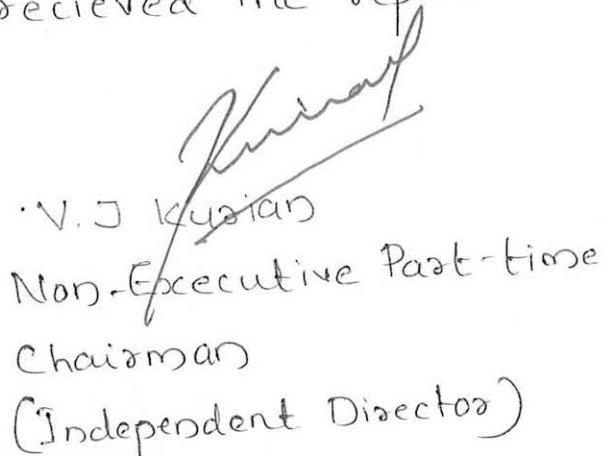 recieved the
V. J Kurian
Non-Excecutive Part-time
Chairman
(Independent Director)